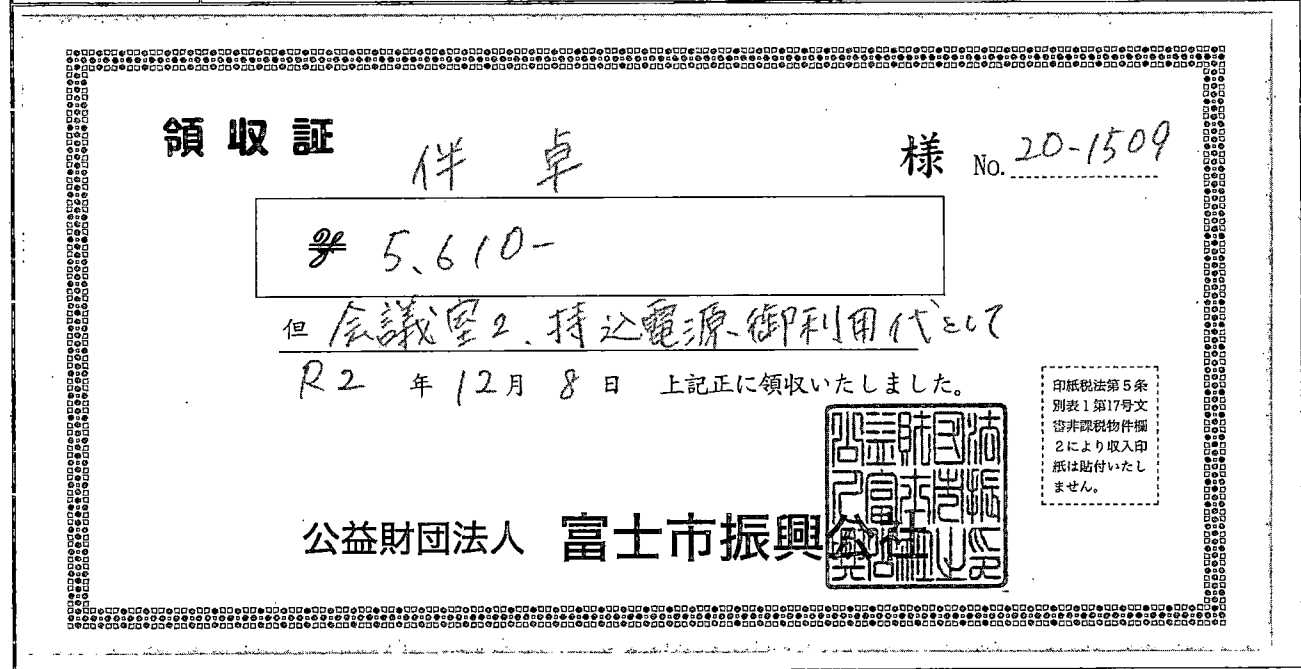 領収証 伴 卓 様 No. 20-1509
¥ 5,610-
但 会議室2、持込電源、御利用代として
R2 年 12月 8 日 上記正に領収いたしました。
印紙税法第5条
別表1第17号文
書非課税物件欄
2により収入印
紙は貼付いたし
ません。
公益財団法人 富士市振興公社